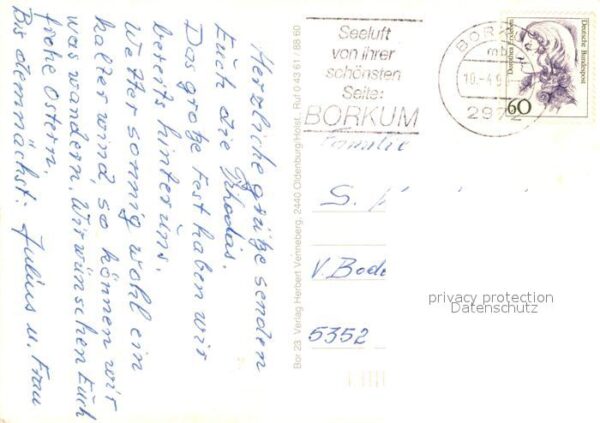 Herzliche Grüße senden
Euch die Rhodas.
Das große Fest haben wir
bereits hinter uns.
Wetter sonnig wohl ein
kalter wind, so können wir
was wandern. Wir wünschen Euch
frohe Ostern.
Bis demnächst. Julius u. Frau
Bor 23 Verlag Herbert Venneberg, 2440 Oldenburg/Holst., Ruf 0 43 61 / 88 60
Seeluft
von ihrer
schönsten
Seite:
BORKUM
BORKUM
mb
10.-4.9
2972
Deutsche Bundespost
60
Familie
S.
V. Bode
5352
privacy protection
Datenschutz